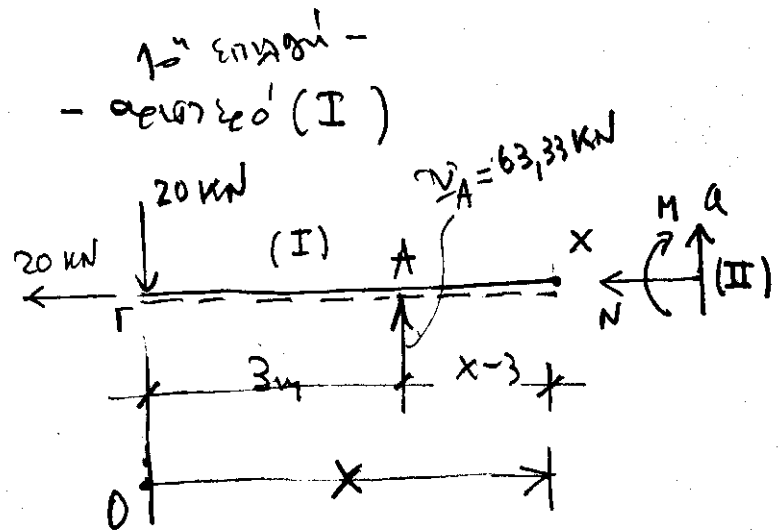 1ⁿ επιλογή -
- αριστερό (I)
20 KN
V_A = 63,33 KN
20 KN
(I)
A
X
M
Q
Γ
N
(II)
3m
x-3
0
X